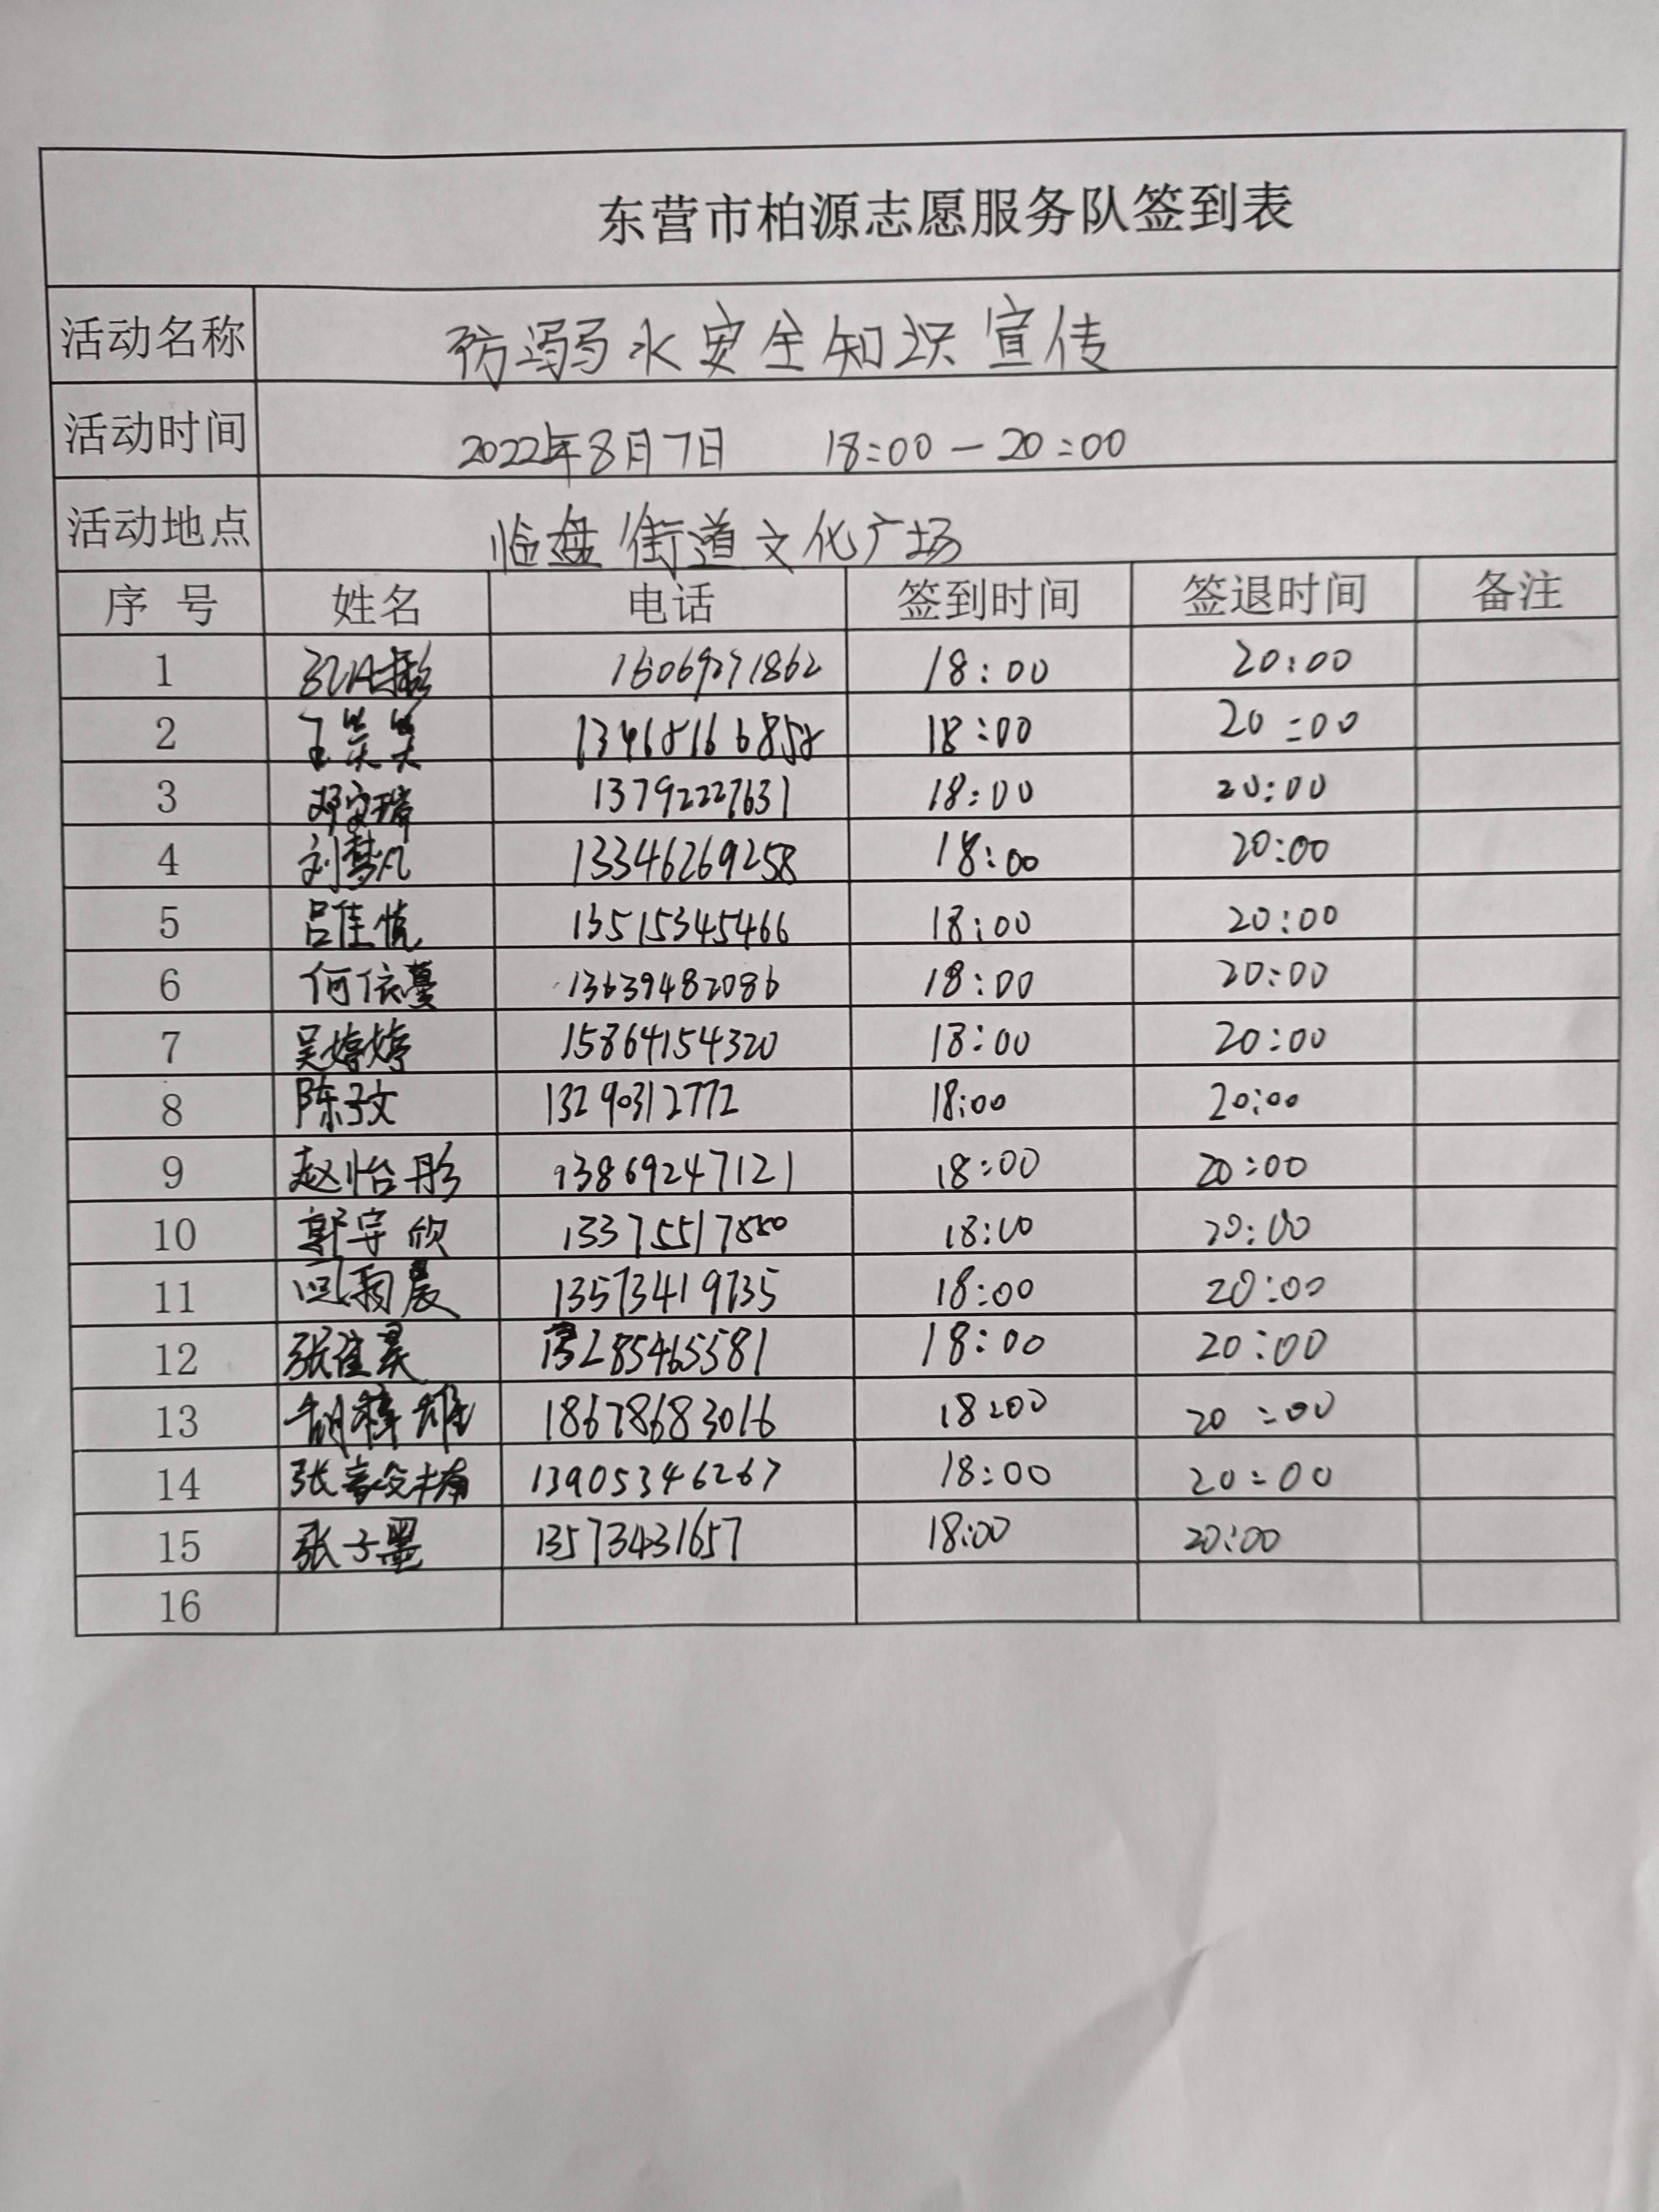 东营市柏源志愿服务队签到表
活动名称 防溺水安全知识宣传
活动时间 2022年8月7日 18:00-20:00
活动地点 临盘街道文化广场
序号 姓名 电话 签到时间 签退时间 备注
1 18:00 20:00
2 王笑笑 18:00 20:00
3 邓安瑞 13792227631 18:00 20:00
4 刘梦凡 13346269258 18:00 20:00
5 吕佳悦 13515345466 18:00 20:00
6 何依蔓 13639482086 18:00 20:00
7 吴婷婷 15864154320 18:00 20:00
8 陈子文 13290312772 18:00 20:00
9 赵怡彤 13869247121 18:00 20:00
10 郭宇欣 18:00 20:00
11 13573419735 18:00 20:00
12 18:00 20:00
13 18678683016 18:00 20:00
14 13905346267 18:00 20:00
15 张子墨 13573431657 18:00 20:00
16